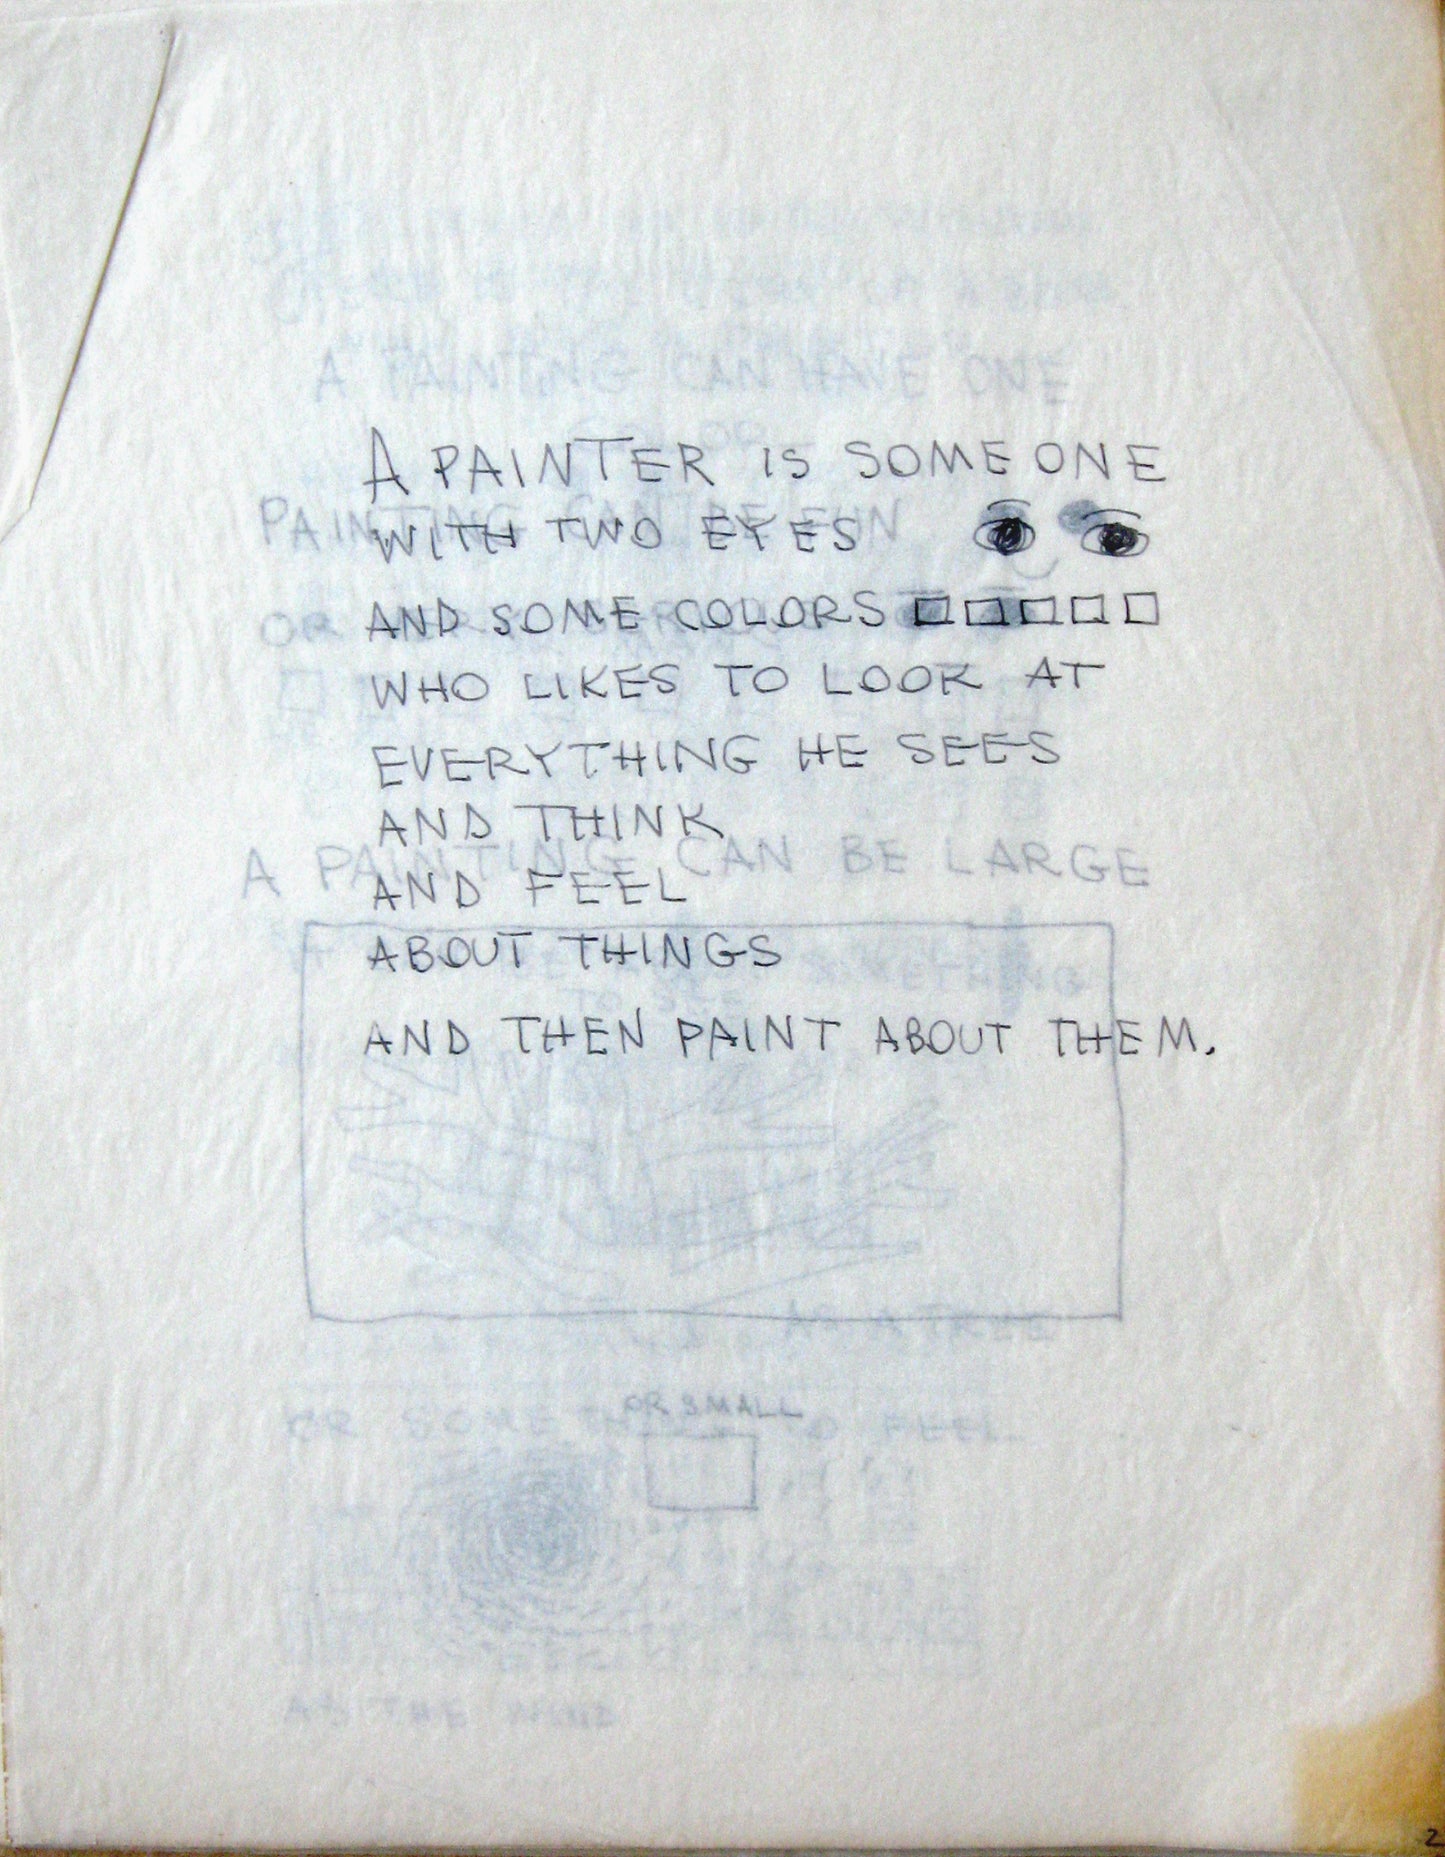 A PAINTER IS SOMEONE
WITH TWO EYES
AND SOME COLORS
WHO LIKES TO LOOK AT
EVERYTHING HE SEES
AND THINK
AND FEEL
ABOUT THINGS
AND THEN PAINT ABOUT THEM.
A PAINTING CAN HAVE ONE
COLOR
PAINTING CAN BE FUN
OR
A PAINTING CAN BE LARGE
SOMETHING
TO SEE
AS A TREE
OR SMALL
OR SOMETHING TO FEEL
AS THE WIND
2